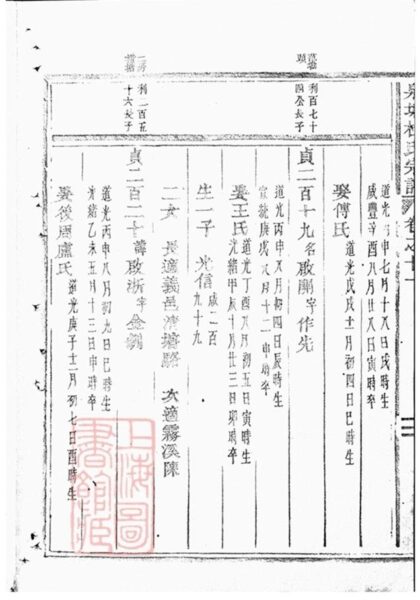 卷之十一
道光丙申七月十八日戌時生
咸豐辛酉八月廿八日寅時卒
娶傅氏 道光戊戌十一月初四日巳時生
墓塘頭
利百七十四公長子
貞二百十九 名啟郎字作先
道光丙申八月初四日辰時生
宣統庚戌八月十二申時卒
娶王氏 道光丁酉八月初五日寅時生
光緒甲辰十月廿三日卯時卒
生一子 光信 咸二百九十九
二女 長適義邑清塘駱 次適霧溪陳
利一百五十六長子
貞二百二十 諱啟浙字金
道光丙申八月初九日巳時生
光緒乙未五月十三日申時卒
娶後周盧氏 道光庚子十一月初七日酉時生
上海圖書館藏